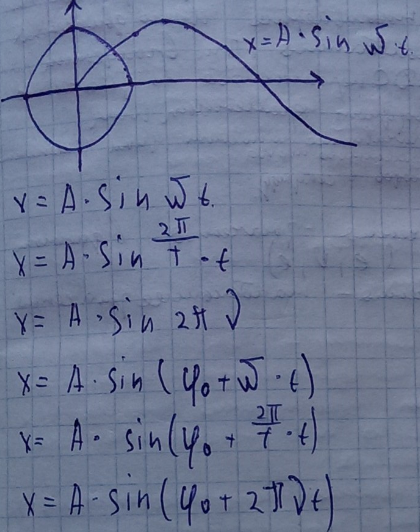 x = A · sin ω t.
x = A · sin ω t.
x = A · sin 2π/T · t
x = A · sin 2π ν
x = A · sin (φ₀ + ω · t)
x = A · sin (φ₀ + 2π/T · t)
x = A · sin (φ₀ + 2π ν t)